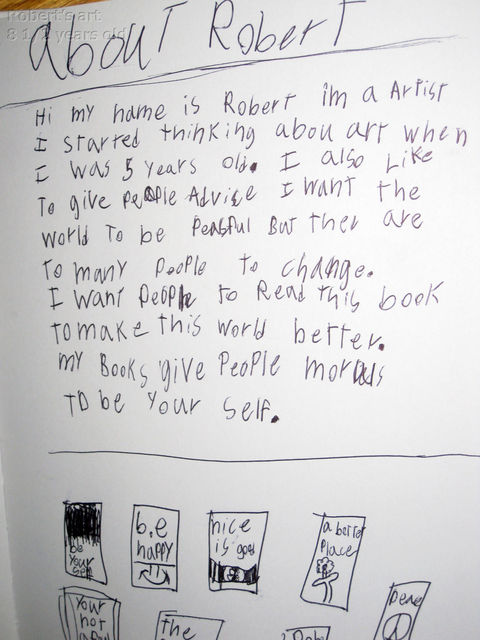 Robert's art
8 1/2 years old
About Robert
Hi my name is Robert im a Artist
I started thinking abou art when
I was 5 years old. I also Like
To give people Advice I want the
world To be peasful But ther are
To many people to change.
I want people to Read this book
To make this world better.
my Books give people morals
To be your self.
be
your
self
b.e
happy
nice
is good
a better
place
peace
your
not
the